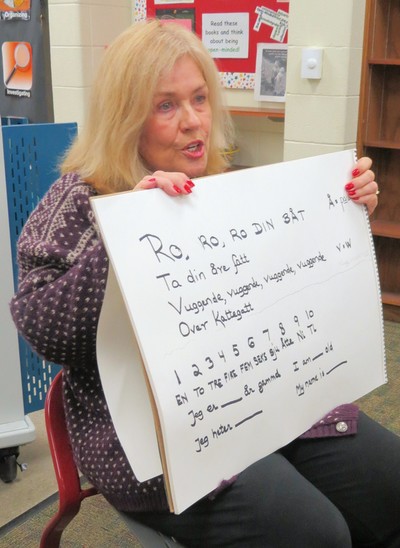 Organizing
Investigating
Read these
books and think
about being
open-minded!
RO, RO, RO DIN BÅT Å =
Ta din åre fatt
Vuggende, vuggende, vuggende, vuggende V=W
Over Kattegatt
1 2 3 4 5 6 7 8 9 10
EN TO TRE FIRE FEM SEKS Sju Åtte Ni Ti
Jeg er ___ år gammel I am ___ old
Jeg heter ___ My name is ___